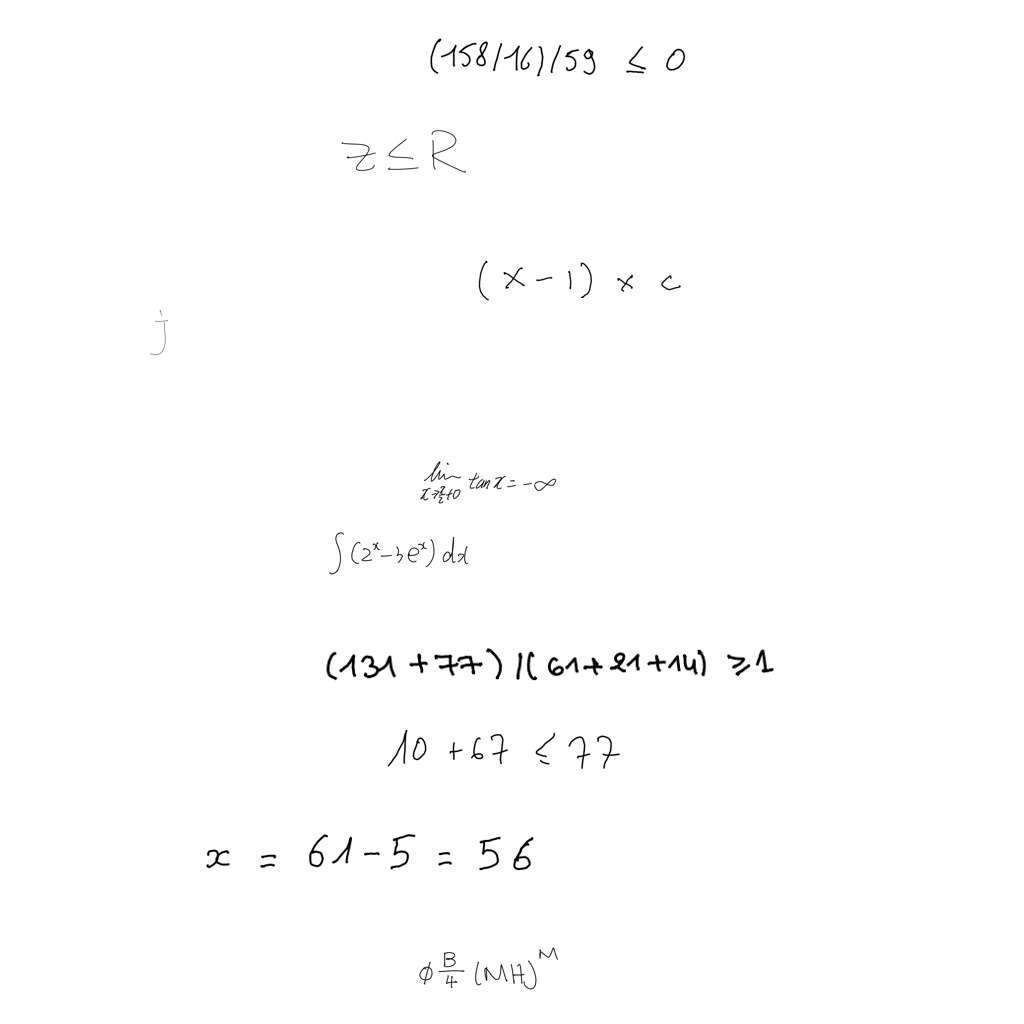 (158/16)/59 ≤ 0
z ≤ R
(x-1) × c
j
lim_{x→π/2+0} tan x = -∞
∫(2^x - 3e^x) dx
(131+77)/(61+21+14) ≥ 1
10+67 ≤ 77
x = 61-5 = 56
ϕ B/4 (MH)^M